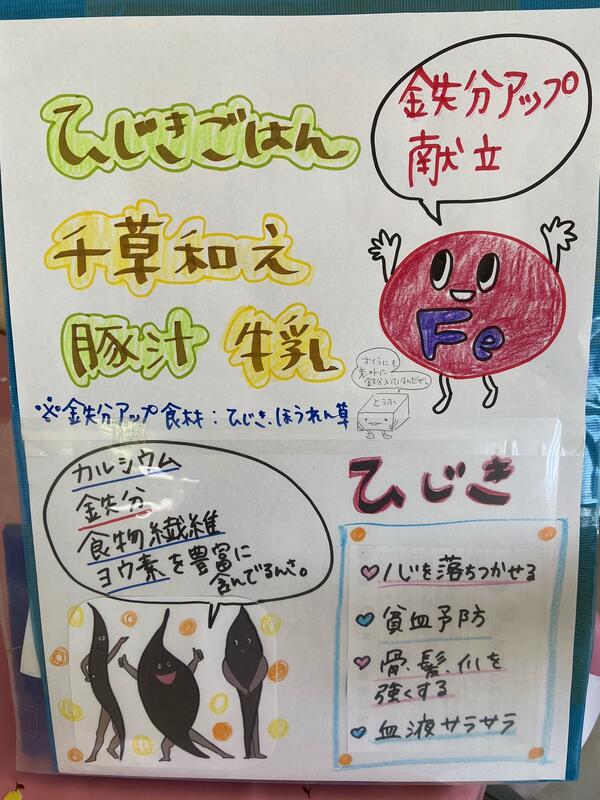 ひじきごはん
鉄分アップ
献立
千草和え
豚汁 牛乳
Fe
オイラにも
意外に
鉄分入ってるんだぜ。
とうふ
※鉄分アップ食材：ひじき、ほうれん草
カルシウム
鉄分
食物繊維
ヨウ素を豊富に
含んでるんさ。
ひじき
心を落ちつかせる
貧血予防
骨、髪、爪を
強くする
血液サラサラ